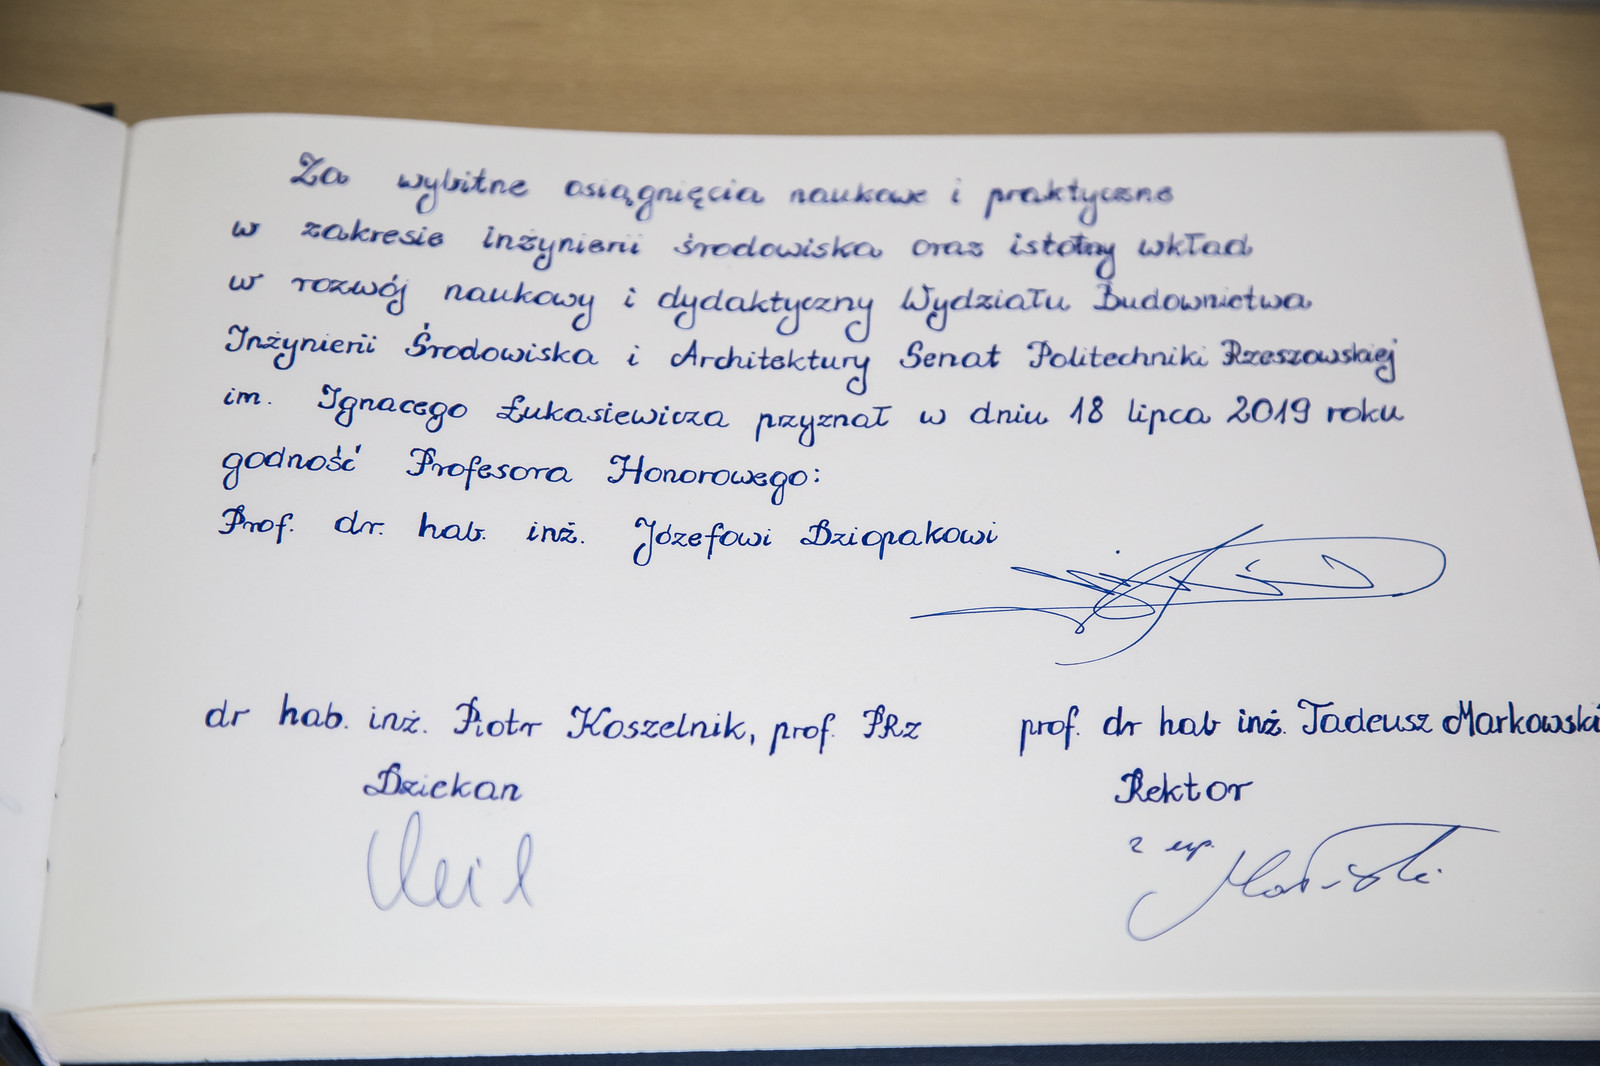 Za wybitne osiągnięcia naukowe i praktyczne
w zakresie inżynierii środowiska oraz istotny wkład
w rozwój naukowy i dydaktyczny Wydziału Budownictwa
Inżynierii Środowiska i Architektury Senat Politechniki Rzeszowskiej
im. Ignacego Łukasiewicza przyznał w dniu 18 lipca 2019 roku
godność Profesora Honorowego:
Prof. dr. hab. inż. Józefowi Dziopakowi
dr hab. inż. Piotr Koszelnik, prof. PRz prof. dr hab inż. Tadeusz Markowski
Dziekan Rektor
z up.